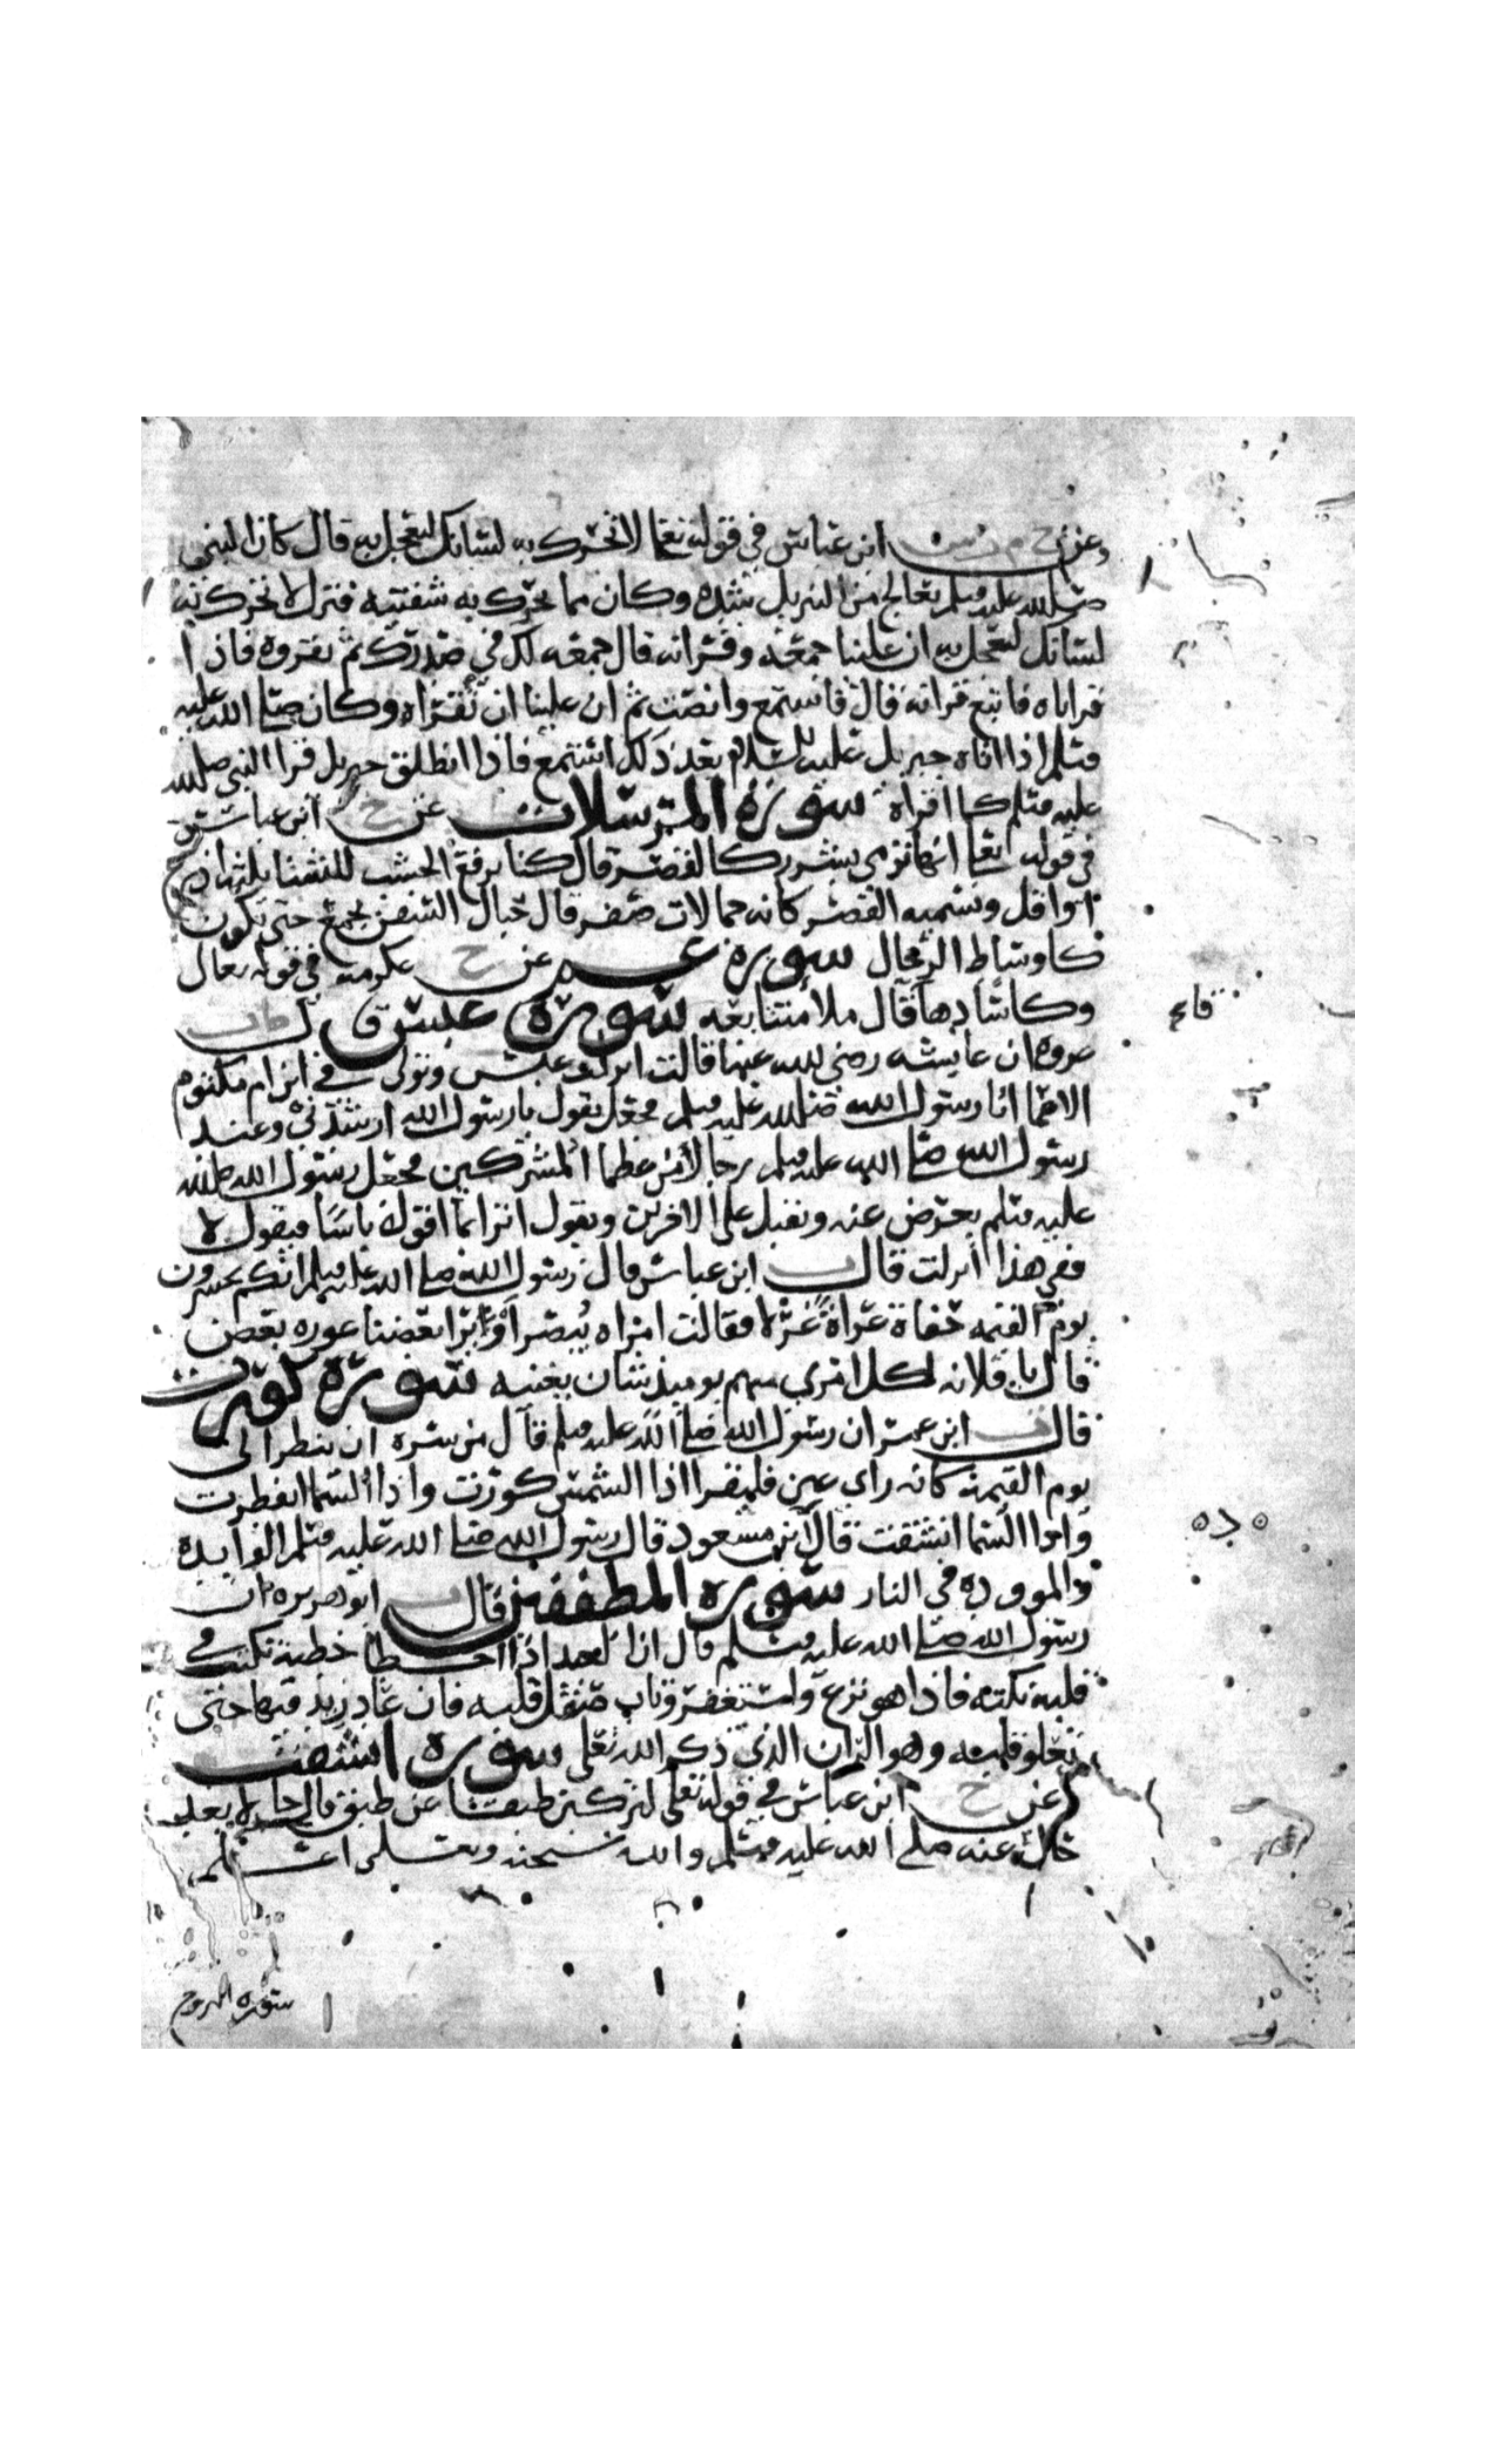 وعن خ م ت س ابن عباس في قوله تعالى لا تحرك به لسانك لتعجل به قال كان النبي
صلى الله عليه وسلم يعالج من التنزيل شده وكان مما يحرك به شفتيه فنزل لا تحرك به
لسانك لتعجل به ان علينا جمعه وقرانه قال جمعه لك في صدرك ثم تقروه فاذا
قراناه فاتبع قرانه قال فاستمع وانصت ثم ان علينا ان تقراه وكان صلى الله عليه
وسلم اذا اتاه جبريل عليه السلام بعد ذلك استمع فاذا انطلق جبريل قرا النبي صلى الله
عليه وسلم كما اقراه سورة المرسلات عن خ ابن عباس
في قوله تعالى انها ترمي بشرر كالقصر قال كنا نرفع الخشب للشتا ثلثة اذرع
او اقل ونسميه القصر كانه جمالات صفر قال حبال السفن تجمع حتى تكون
كاوساط الرجال سورة عم عن خ عكرمه في قوله تعالى
وكاسا دهاقا قال ملا متتابعه سورة عبس قال
عروه ان عايشه رضي الله عنها قالت انزلت عبس وتولى في ابن ام مكتوم
الاعمى اتا رسول الله صلى الله عليه وسلم فجعل يقول يا رسول الله ارشدني وعند
رسول الله صلى الله عليه وسلم رجالا من عظما المشركين فجعل رسول الله صلى الله
عليه وسلم يعرض عنه ويقبل على الاخرين ويقول اترى بما اقول باسا فيقول لا
ففي هذا انزلت قال ابن عباس قال رسول الله صلى الله عليه وسلم انكم تحشرون
يوم القيمه حفاة عراة غرلا فقالت امراه يبصر او يرا بعضنا عوره بعض
قال يا فلانه لكل امري منهم يوميذ شان يغنيه سورة كورت
قال ابن عمر ان رسول الله صلى الله عليه وسلم قال من سره ان ينظر الى
يوم القيمة كانه راي عين فليقرا اذا الشمس كورت واذا السما انفطرت
واذا السما انشقت قال ابن مسعود قال رسول الله صلى الله عليه وسلم الوايده
والموودة في النار سورة المطففين قال ابو هريره ان
رسول الله صلى الله عليه وسلم قال ان العبد اذا اخطا خطية نكتت في
قلبه نكته فاذا هو نزع واستغفر وتاب صقل قلبه فان عاد زيد فيها حتى
تعلو قلبه وهو الران الذي ذكر الله تعلى سورة انشقت
عن خ ابن عباس في قوله تعلى لتركبن طبقا عن طبق قال حالا بعد
حال عنه صلى الله عليه وسلم والله سبحنه وتعلى اعلم
سورة البروج